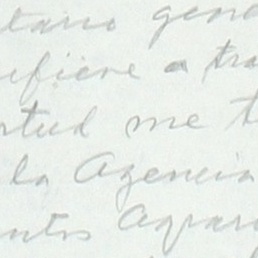 tario gene
efiere a tra
rtud me t
la Agencia
entos Agrar